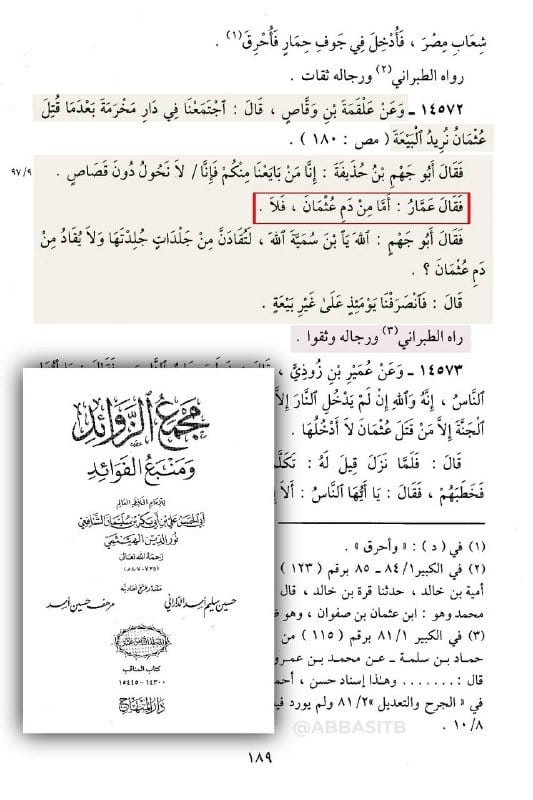 شِعَابِ مِصْرَ ، فَأُدْخِلَ فِي جَوفِ حِمَارٍ فَأُحْرِقَ(١) .
رواه الطبراني(٢) ورجاله ثقات .
١٤٥٧٢ ـ وَعَنْ عَلْقَمَةَ بْنِ وَقَّاصٍ ، قَالَ : ٱجْتَمَعْنَا فِي دَارِ مَخْرَمَةَ بَعْدَمَا قُتِلَ
عُثْمَانُ نُرِيدُ ٱلْبَيْعَةَ ( مص : ١٨٠ ) .
فَقَالَ أَبُو جَهْمِ بْنُ حُذَيفَةَ : إِنَّا مَنْ بَايَعْنَا مِنْكُمْ فَإِنَّا / لاَ نَحُولُ دُونَ قَصَاصٍ .
٩٧/٩
فَقَالَ عَمَّارُ : أَمَّا مِنْ دَمِ عُثْمَانَ ، فَلاَ .
فَقَالَ أَبُو جَهْمٍ : ٱللهَ يَا بْنَ سُمَيَّةَ ٱللهَ ، لَتُقَادَنَّ مِنْ جَلْدَاتٍ جُلِدْتَهَا وَلاَ يُقَادُ مِنْ
دَمِ عُثْمَانَ ؟ .
قَالَ : فَٱنْصَرَفْنَا يَوْمَئِذٍ عَلَىٰ غَيْرِ بَيْعَةٍ .
راه الطبراني(٣) ورجاله وثقوا .
١٤٥٧٣ ـ وَعَنْ عُمَيْرِ بْنِ زُوذِيٍّ ، قَالَ :
ٱلنَّاسُ ، إِنَّهُ وَٱللهِ إِنْ لَمْ يَدْخُلِ ٱلنَّارَ إِلاَّ
ٱلْجَنَّةَ إِلاَّ مَنْ قَتَلَ عُثْمَانَ لاَ أَدْخُلُهَا .
قَالَ : فَلَمَّا نَزَلَ قِيلَ لَهُ :
فَخَطَبَهُمْ ، فَقَالَ : يَا أَيُّهَا ٱلنَّاسُ :
مجمع الزوائد
ومنبع الفوائد
نور الدين الهيثمي
رحمه الله تعالى
حسين سليم أسد الداراني
مرهف حسين أسد
كتاب المناقب
١٤٣٠٠ - ١٥٤٤٥
دار المنهاج
(١) في (د) : « وأحرق » .
(٢) في الكبير ١/ ٨٤ ـ ٨٥ برقم ( ١٢٣ )
أمية بن خالد ، حدثنا قرة بن خالد ، قال
محمد وهو : ابن عثمان بن صفوان ، وهو
(٣) في الكبير ٨١/١ برقم ( ١١٥ ) من
حماد بن سلمة ـ عن محمد بن عمرو
قال : ....... وهذا إسناد حسن ،
في « الجرح والتعديل » ٨١/٢ ولم يورد
١٠/٨ .
@ABBASITB
١٨٩